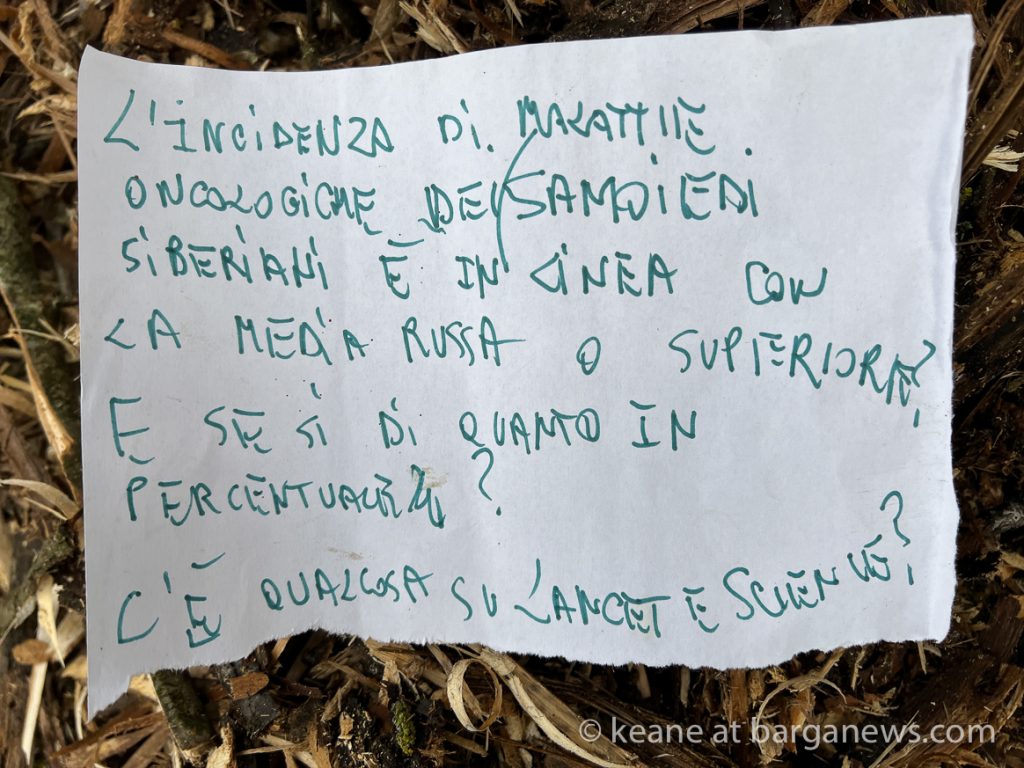 L'INCIDENZA DI MALATTIE
ONCOLOGICHE DEI SAMOIEDI
SIBERIANI È IN LINEA CON
LA MEDIA RUSSA O SUPERIORE?
E SE SI DI QUANTO IN
PERCENTUALE?
C'È QUALCOSA SU LANCET E SCIENCE?
© keane at barganews.com